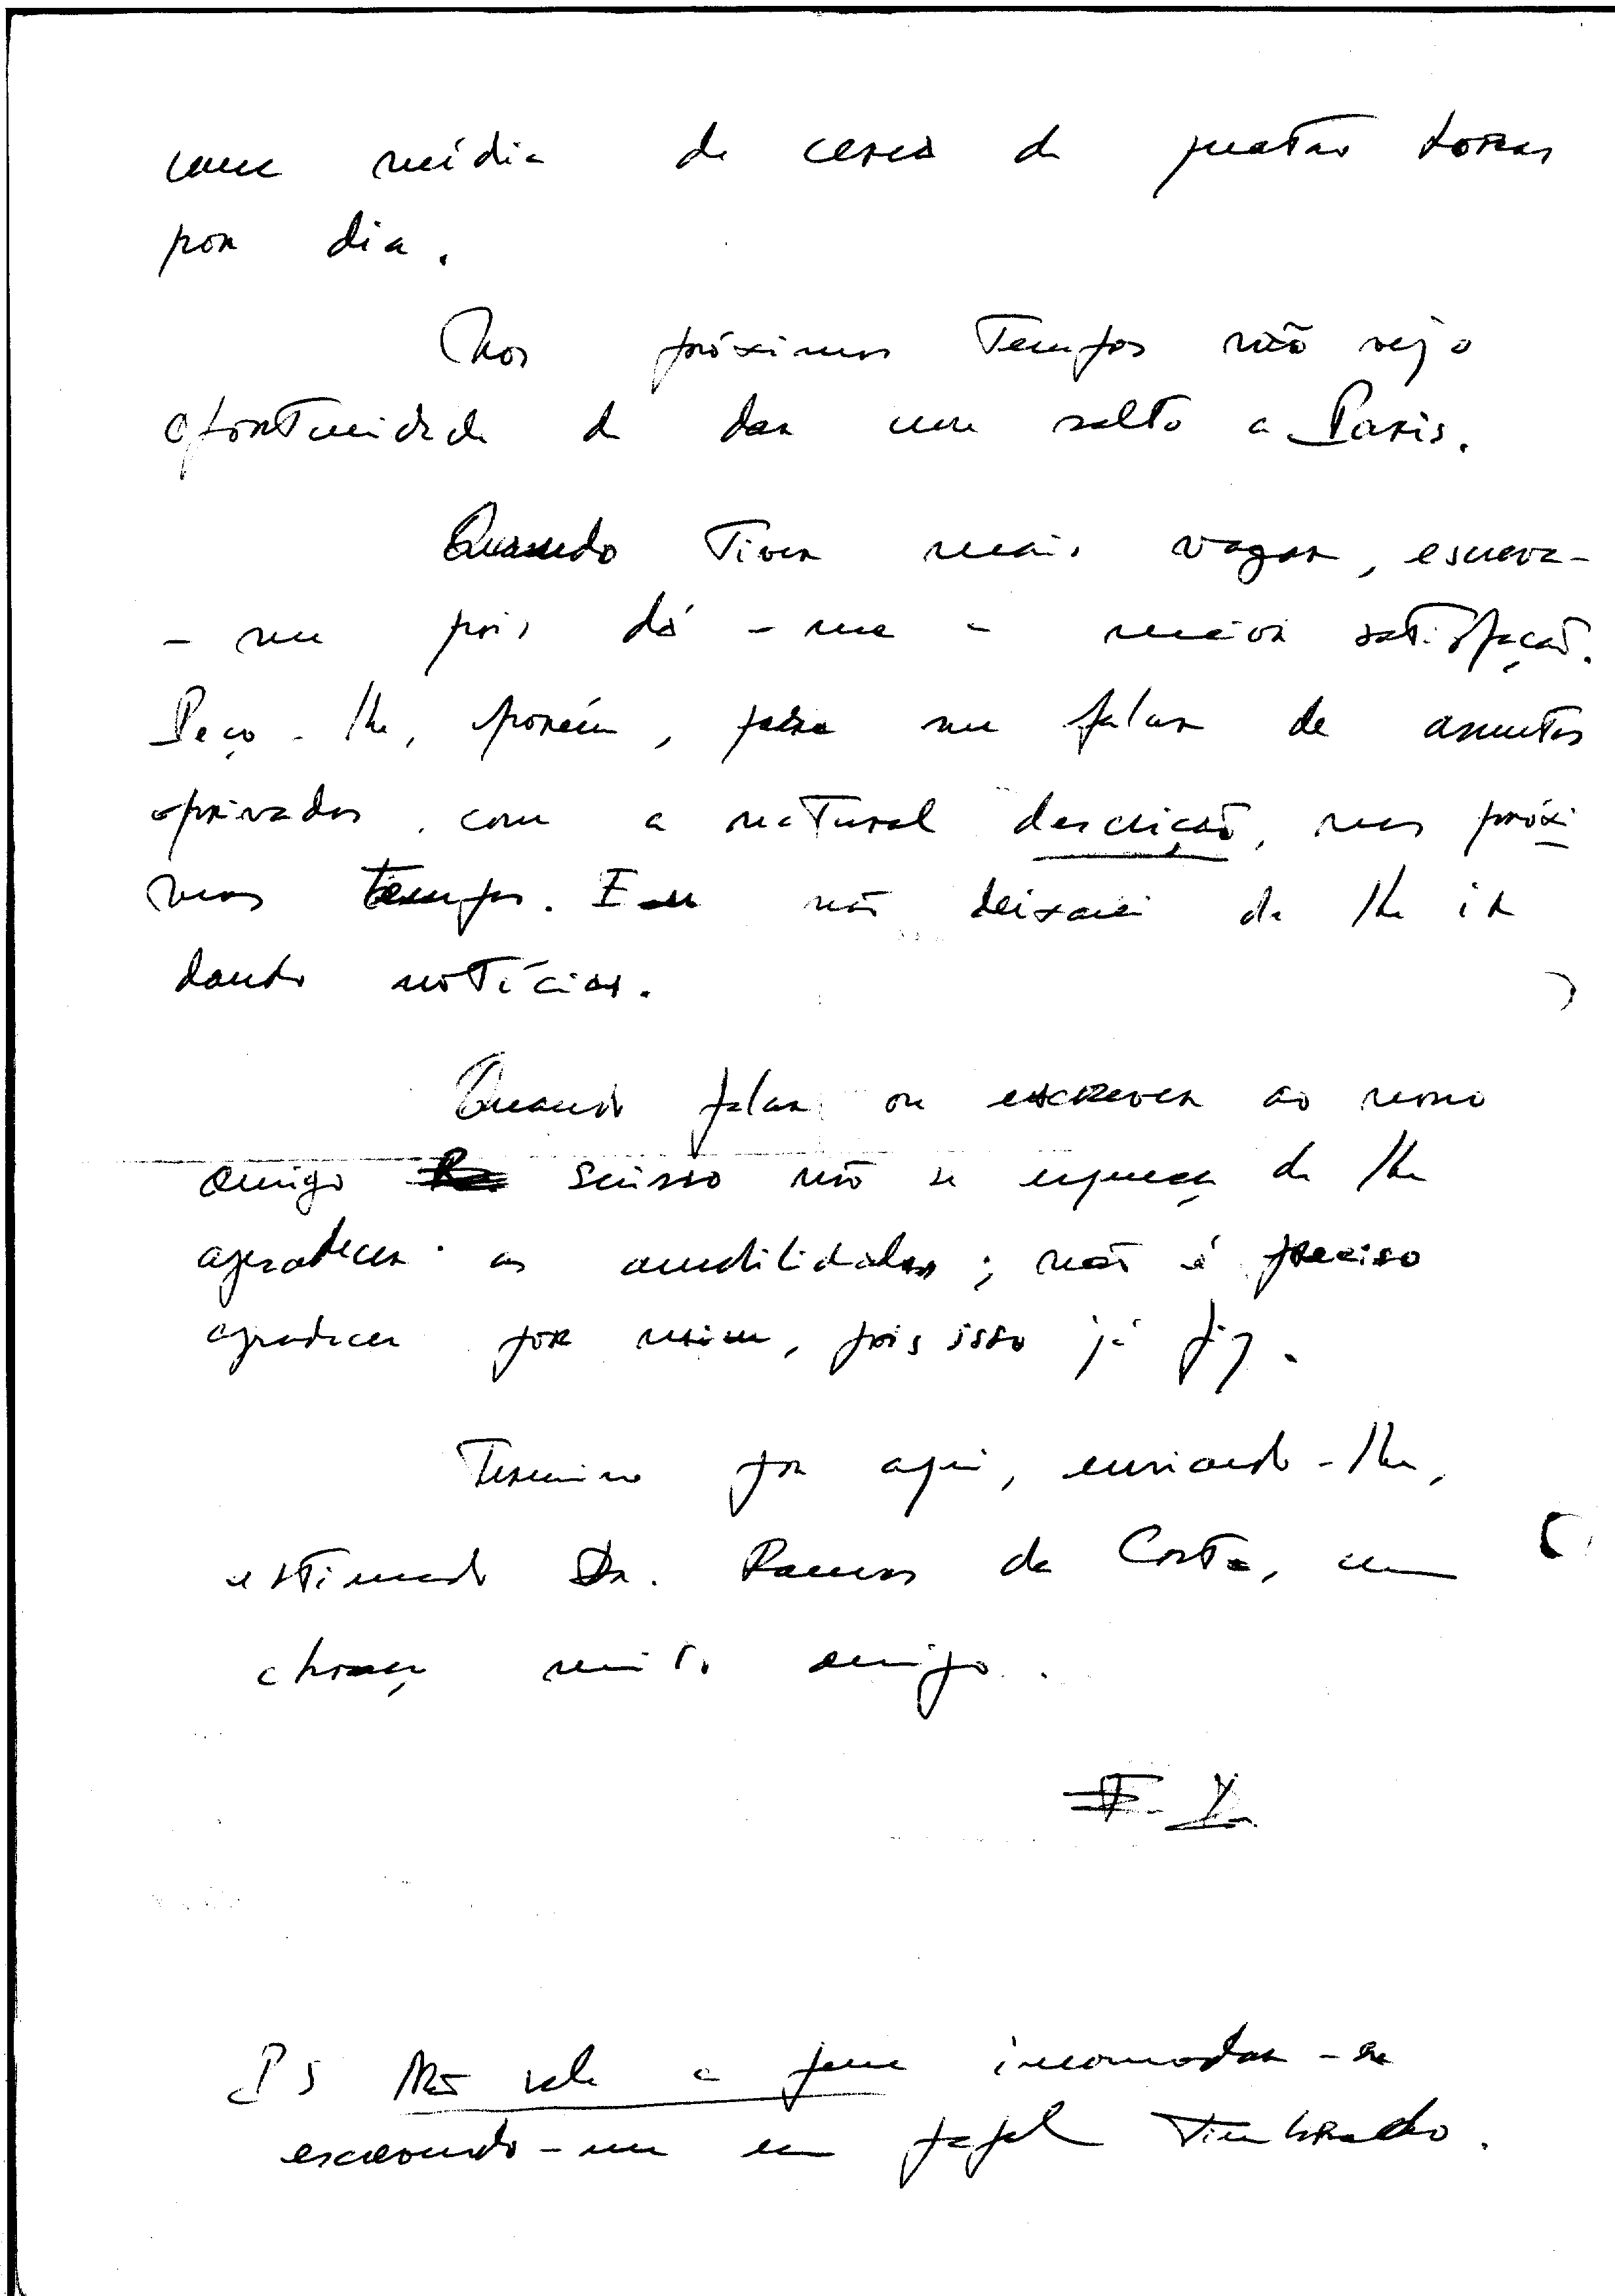 uma média de cerca de quatro horas
por dia.
Nos próximos tempos não vejo
oportunidade de dar um salto a Paris.
Quando tiver mais vagar, escreva-
-me pois dá-me a maior satisfação.
Peço-lhe, porém, para me falar de assuntos
privados, com a natural descrição, nos próxi
mos tempos. Eu não deixarei de lhe ir
dando notícias.
Quando falar ou escrever ao nosso
amigo suisso não se esqueça de lhe
agradecer as amabilidades; não é preciso
agradecer por mim, pois isso já fiz.
Termino por aqui, enviando-lhe,
estimado Dr. Ramos da Costa, um
abraço muito amigo.
PS Não vale a pena incomodar-se
escrevendo-me em papel timbrado.